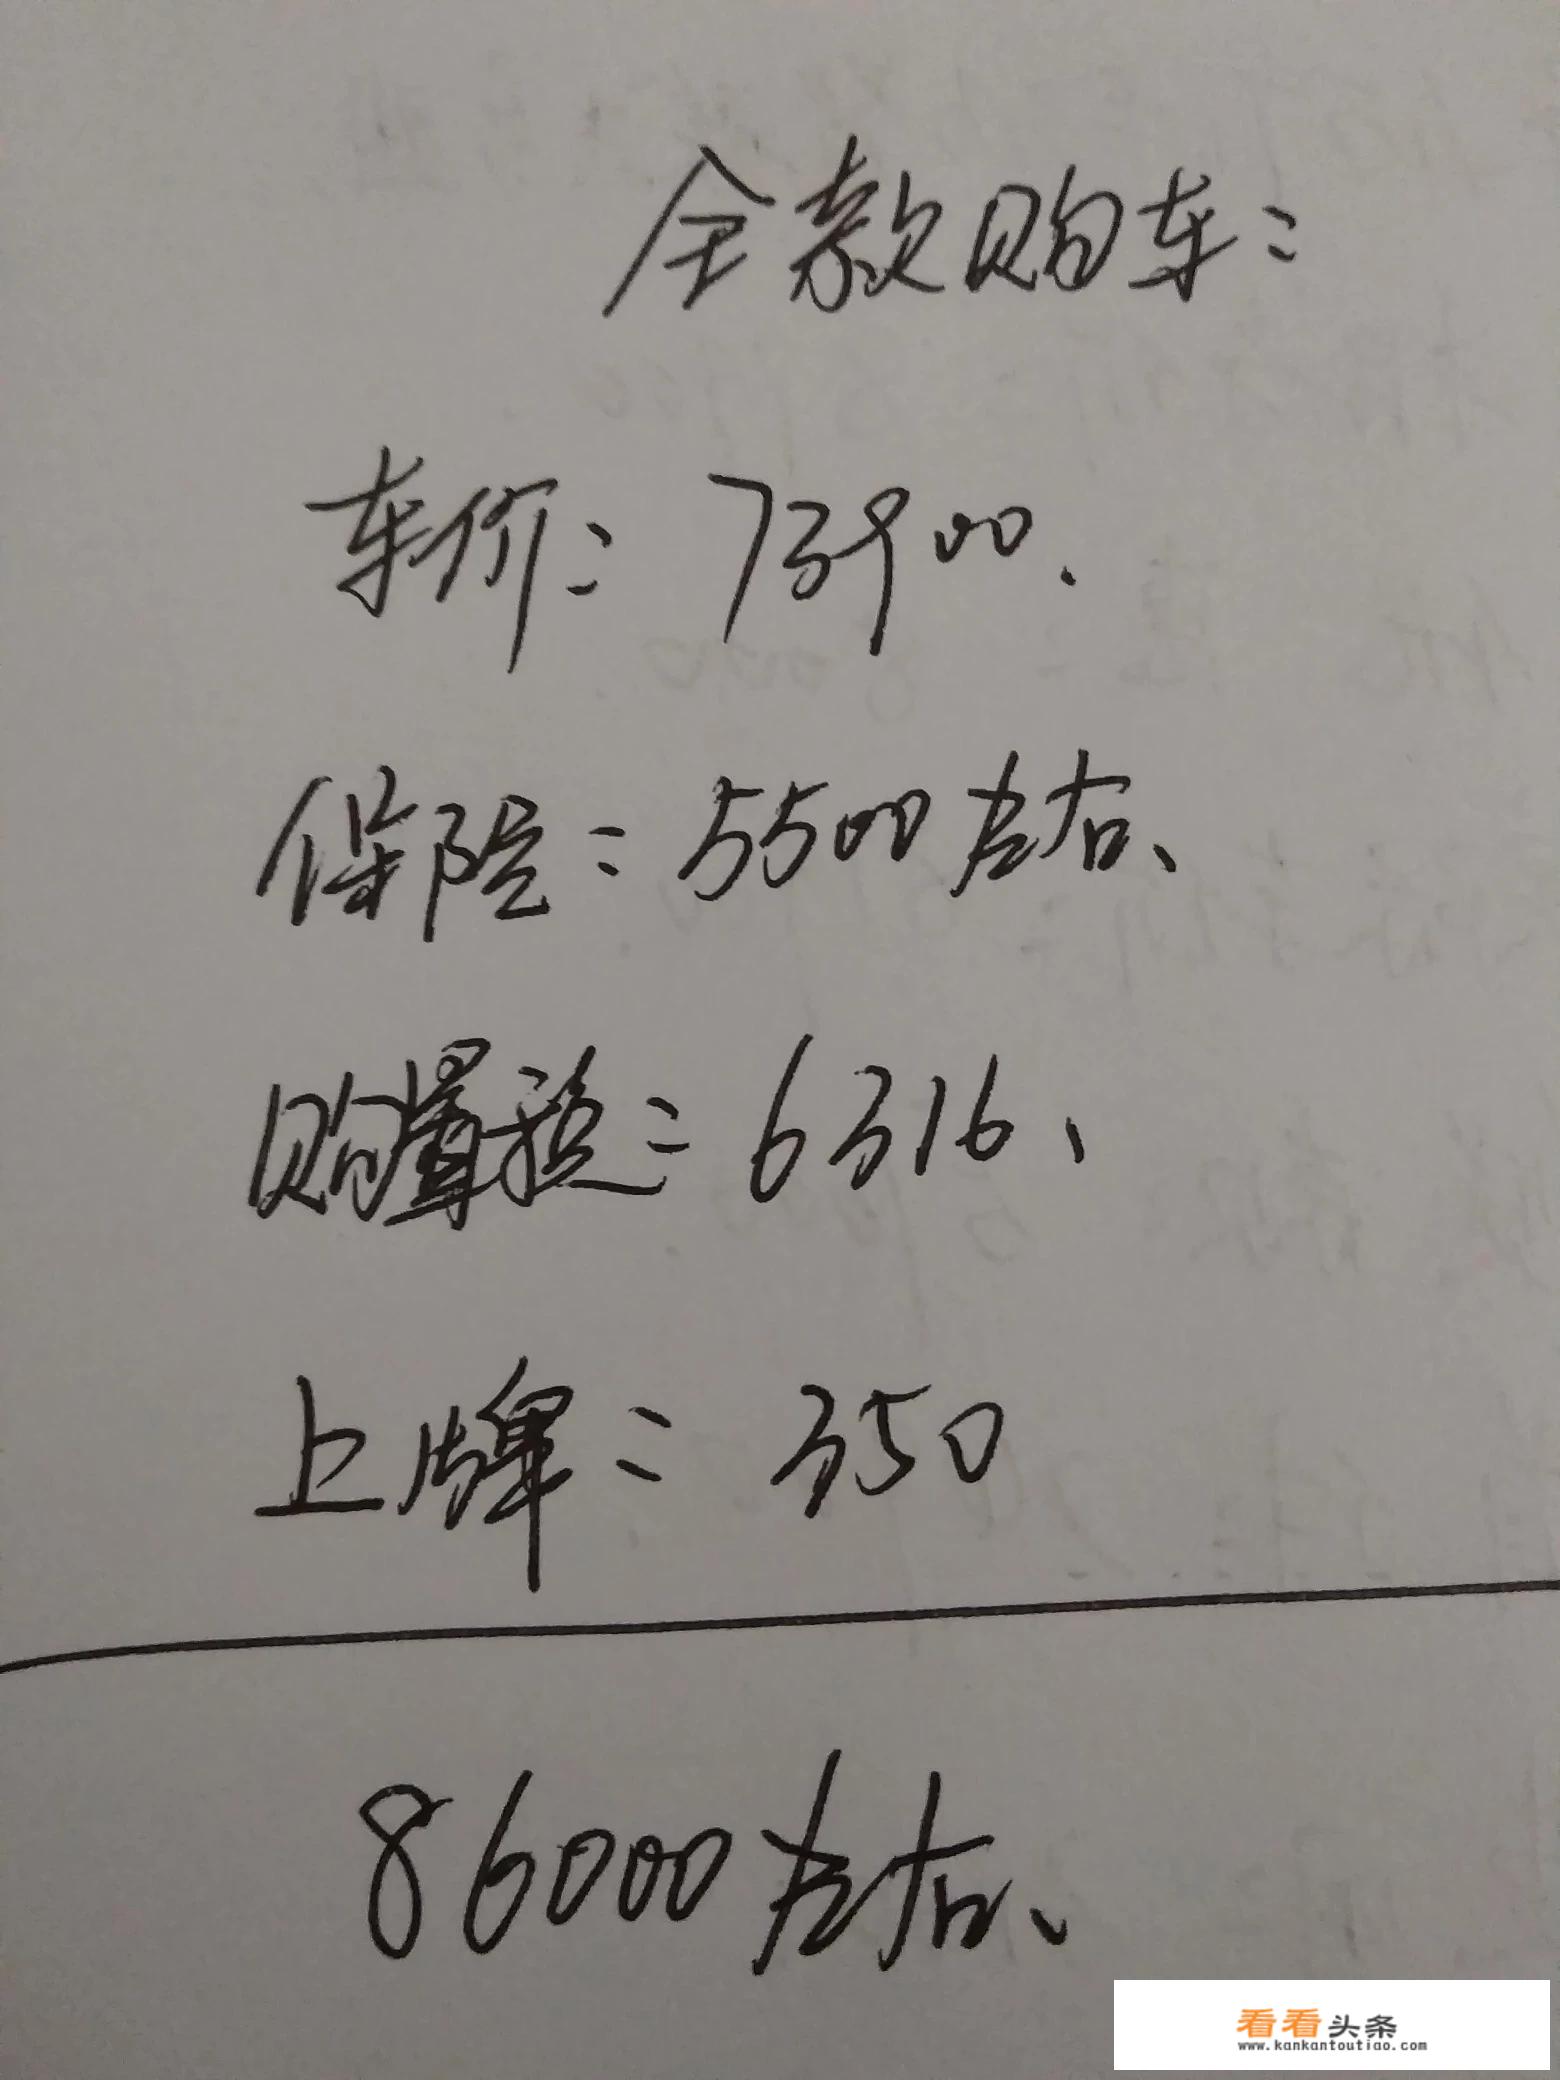 全款购车:
车价: 73900.
保险: 5500左右、
购置税: 6316、
上牌: 350
86000左右、
看看头条
www.kankantoutiao.com